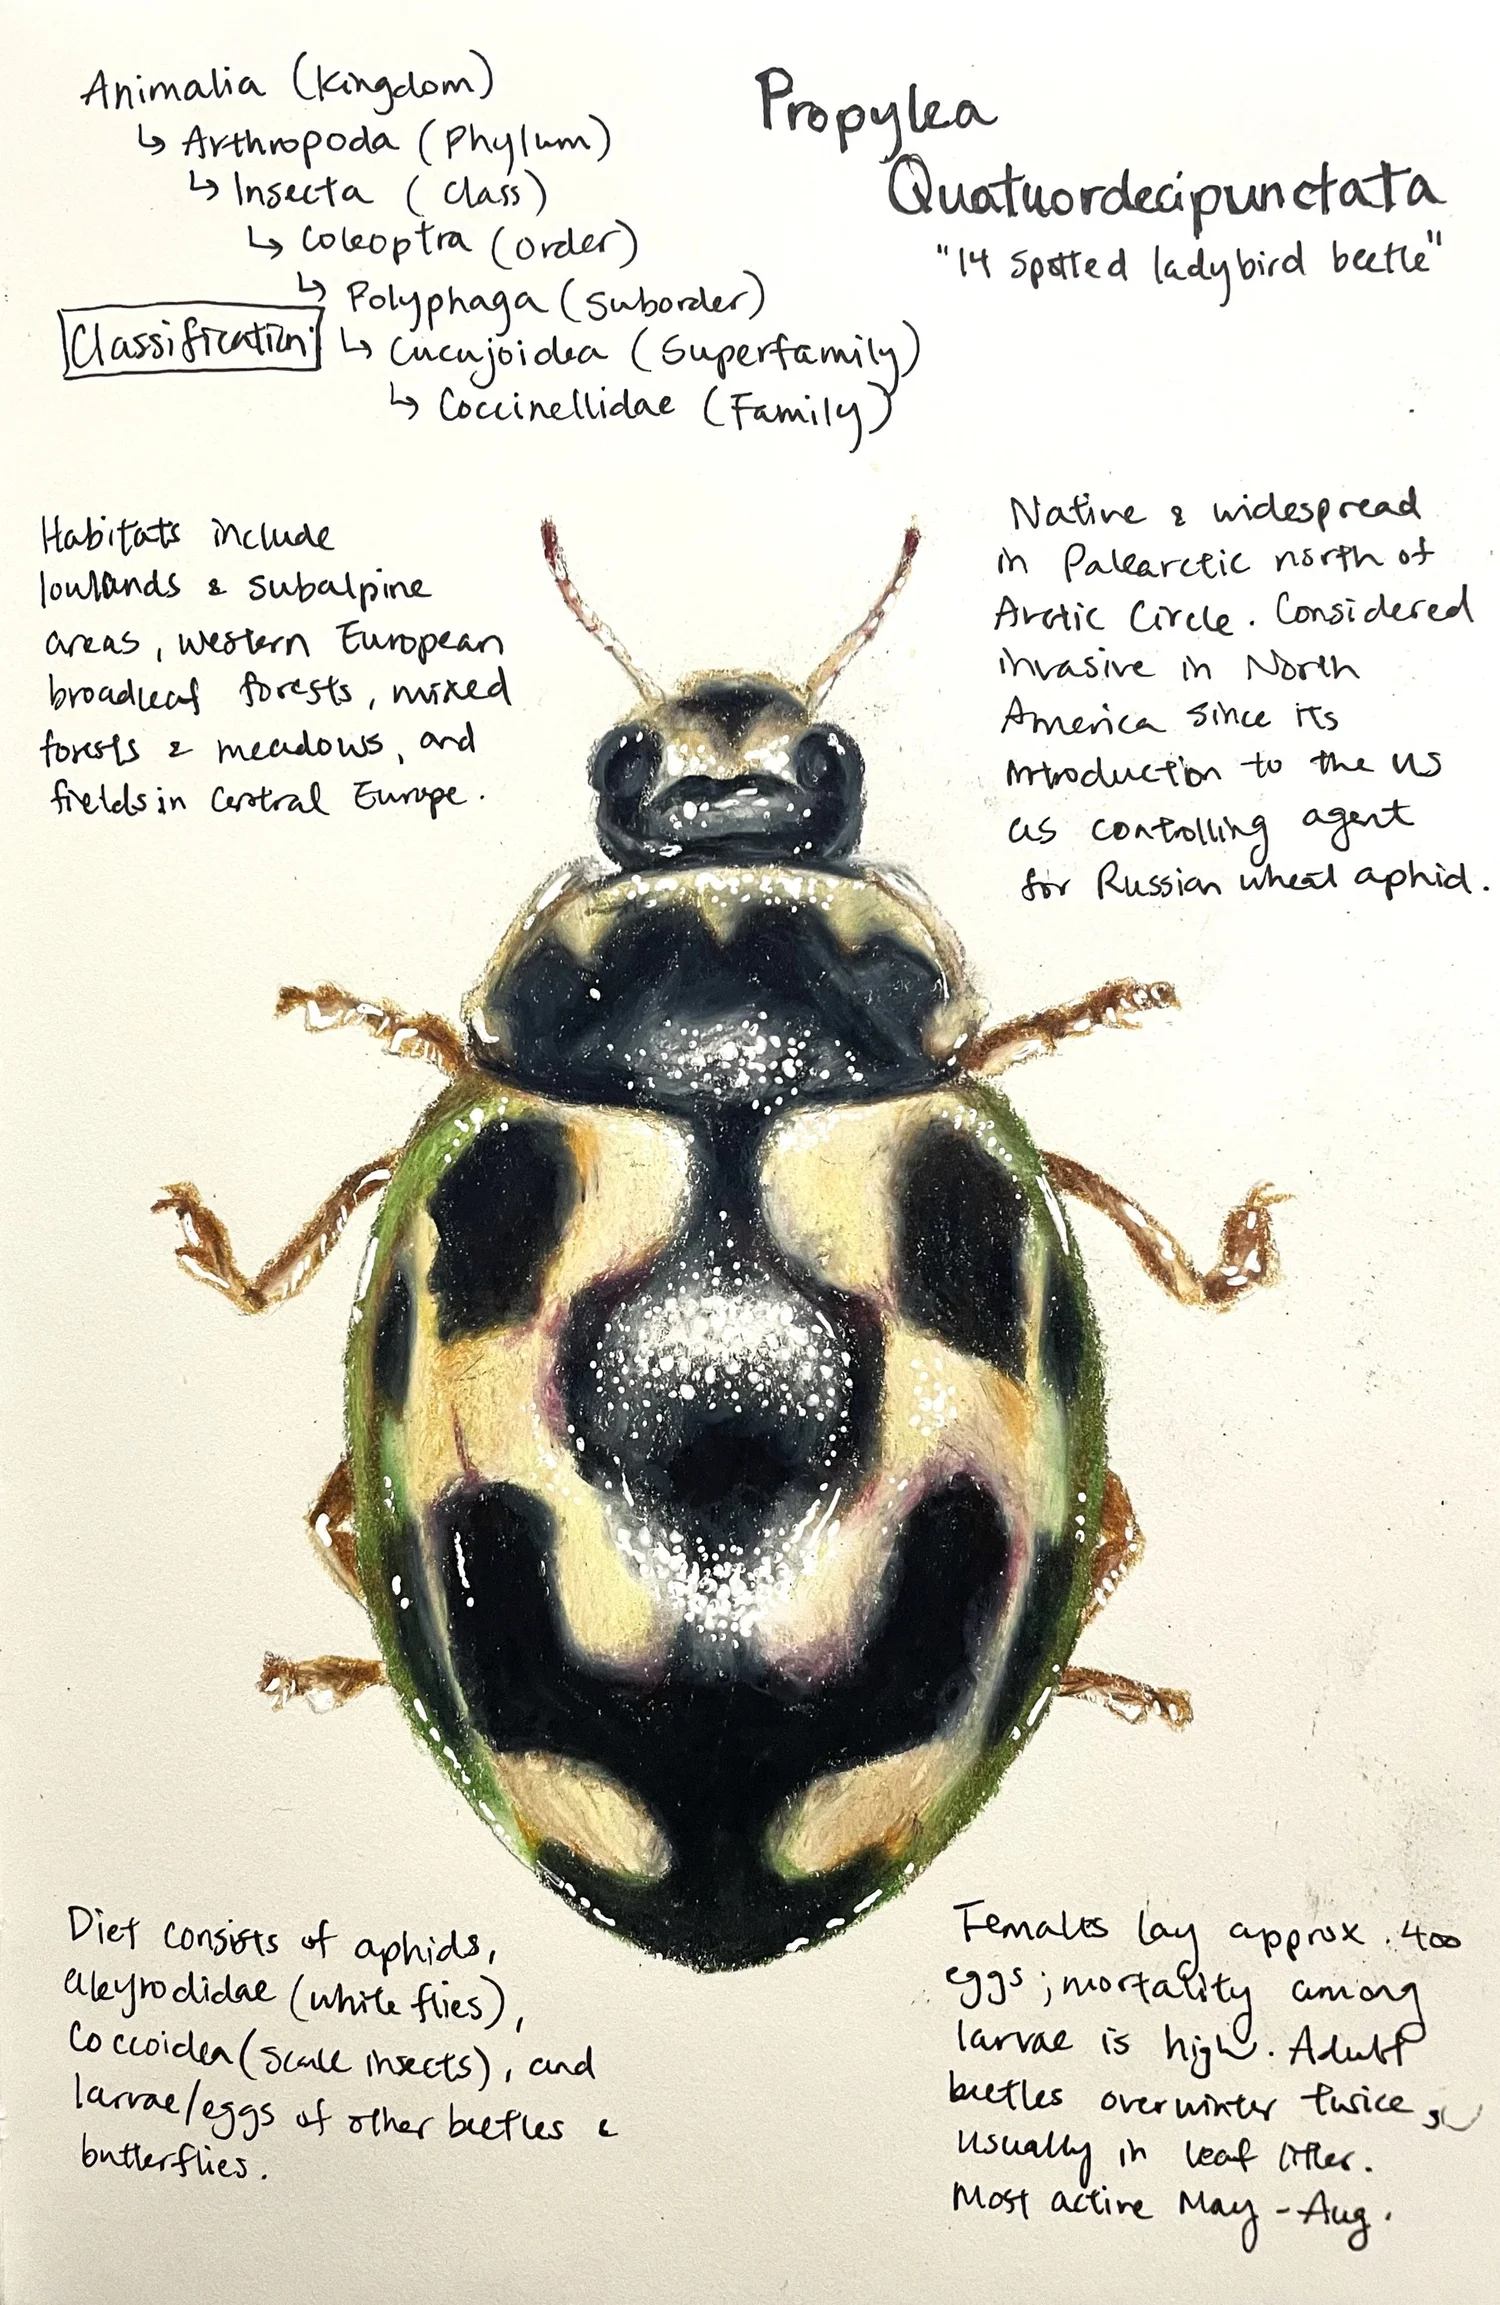 Animalia (Kingdom)
↳ Arthropoda (Phylum)
↳ Insecta (Class)
↳ Coleoptra (order)
↳ Polyphaga (suborder)
↳ Cucujoidea (Superfamily)
↳ Coccinellidae (Family)
Classification
Propylea
Quatuordecipunctata
"14 spotted ladybird beetle"
Habitats include
lowlands & subalpine
areas, western European
broadleaf forests, mixed
forests & meadows, and
fields in Central Europe.
Native & widespread
in Palearctic north of
Arctic Circle. Considered
invasive in North
America since its
introduction to the US
as controlling agent
for Russian wheat aphid.
Diet consists of aphids,
aleyrodidae (white flies),
Coccoidea (scale insects), and
larvae/eggs of other beetles &
butterflies.
Females lay approx. 400
eggs; mortality among
larvae is high. Adult
beetles overwinter twice,
usually in leaf litter.
Most active May - Aug.